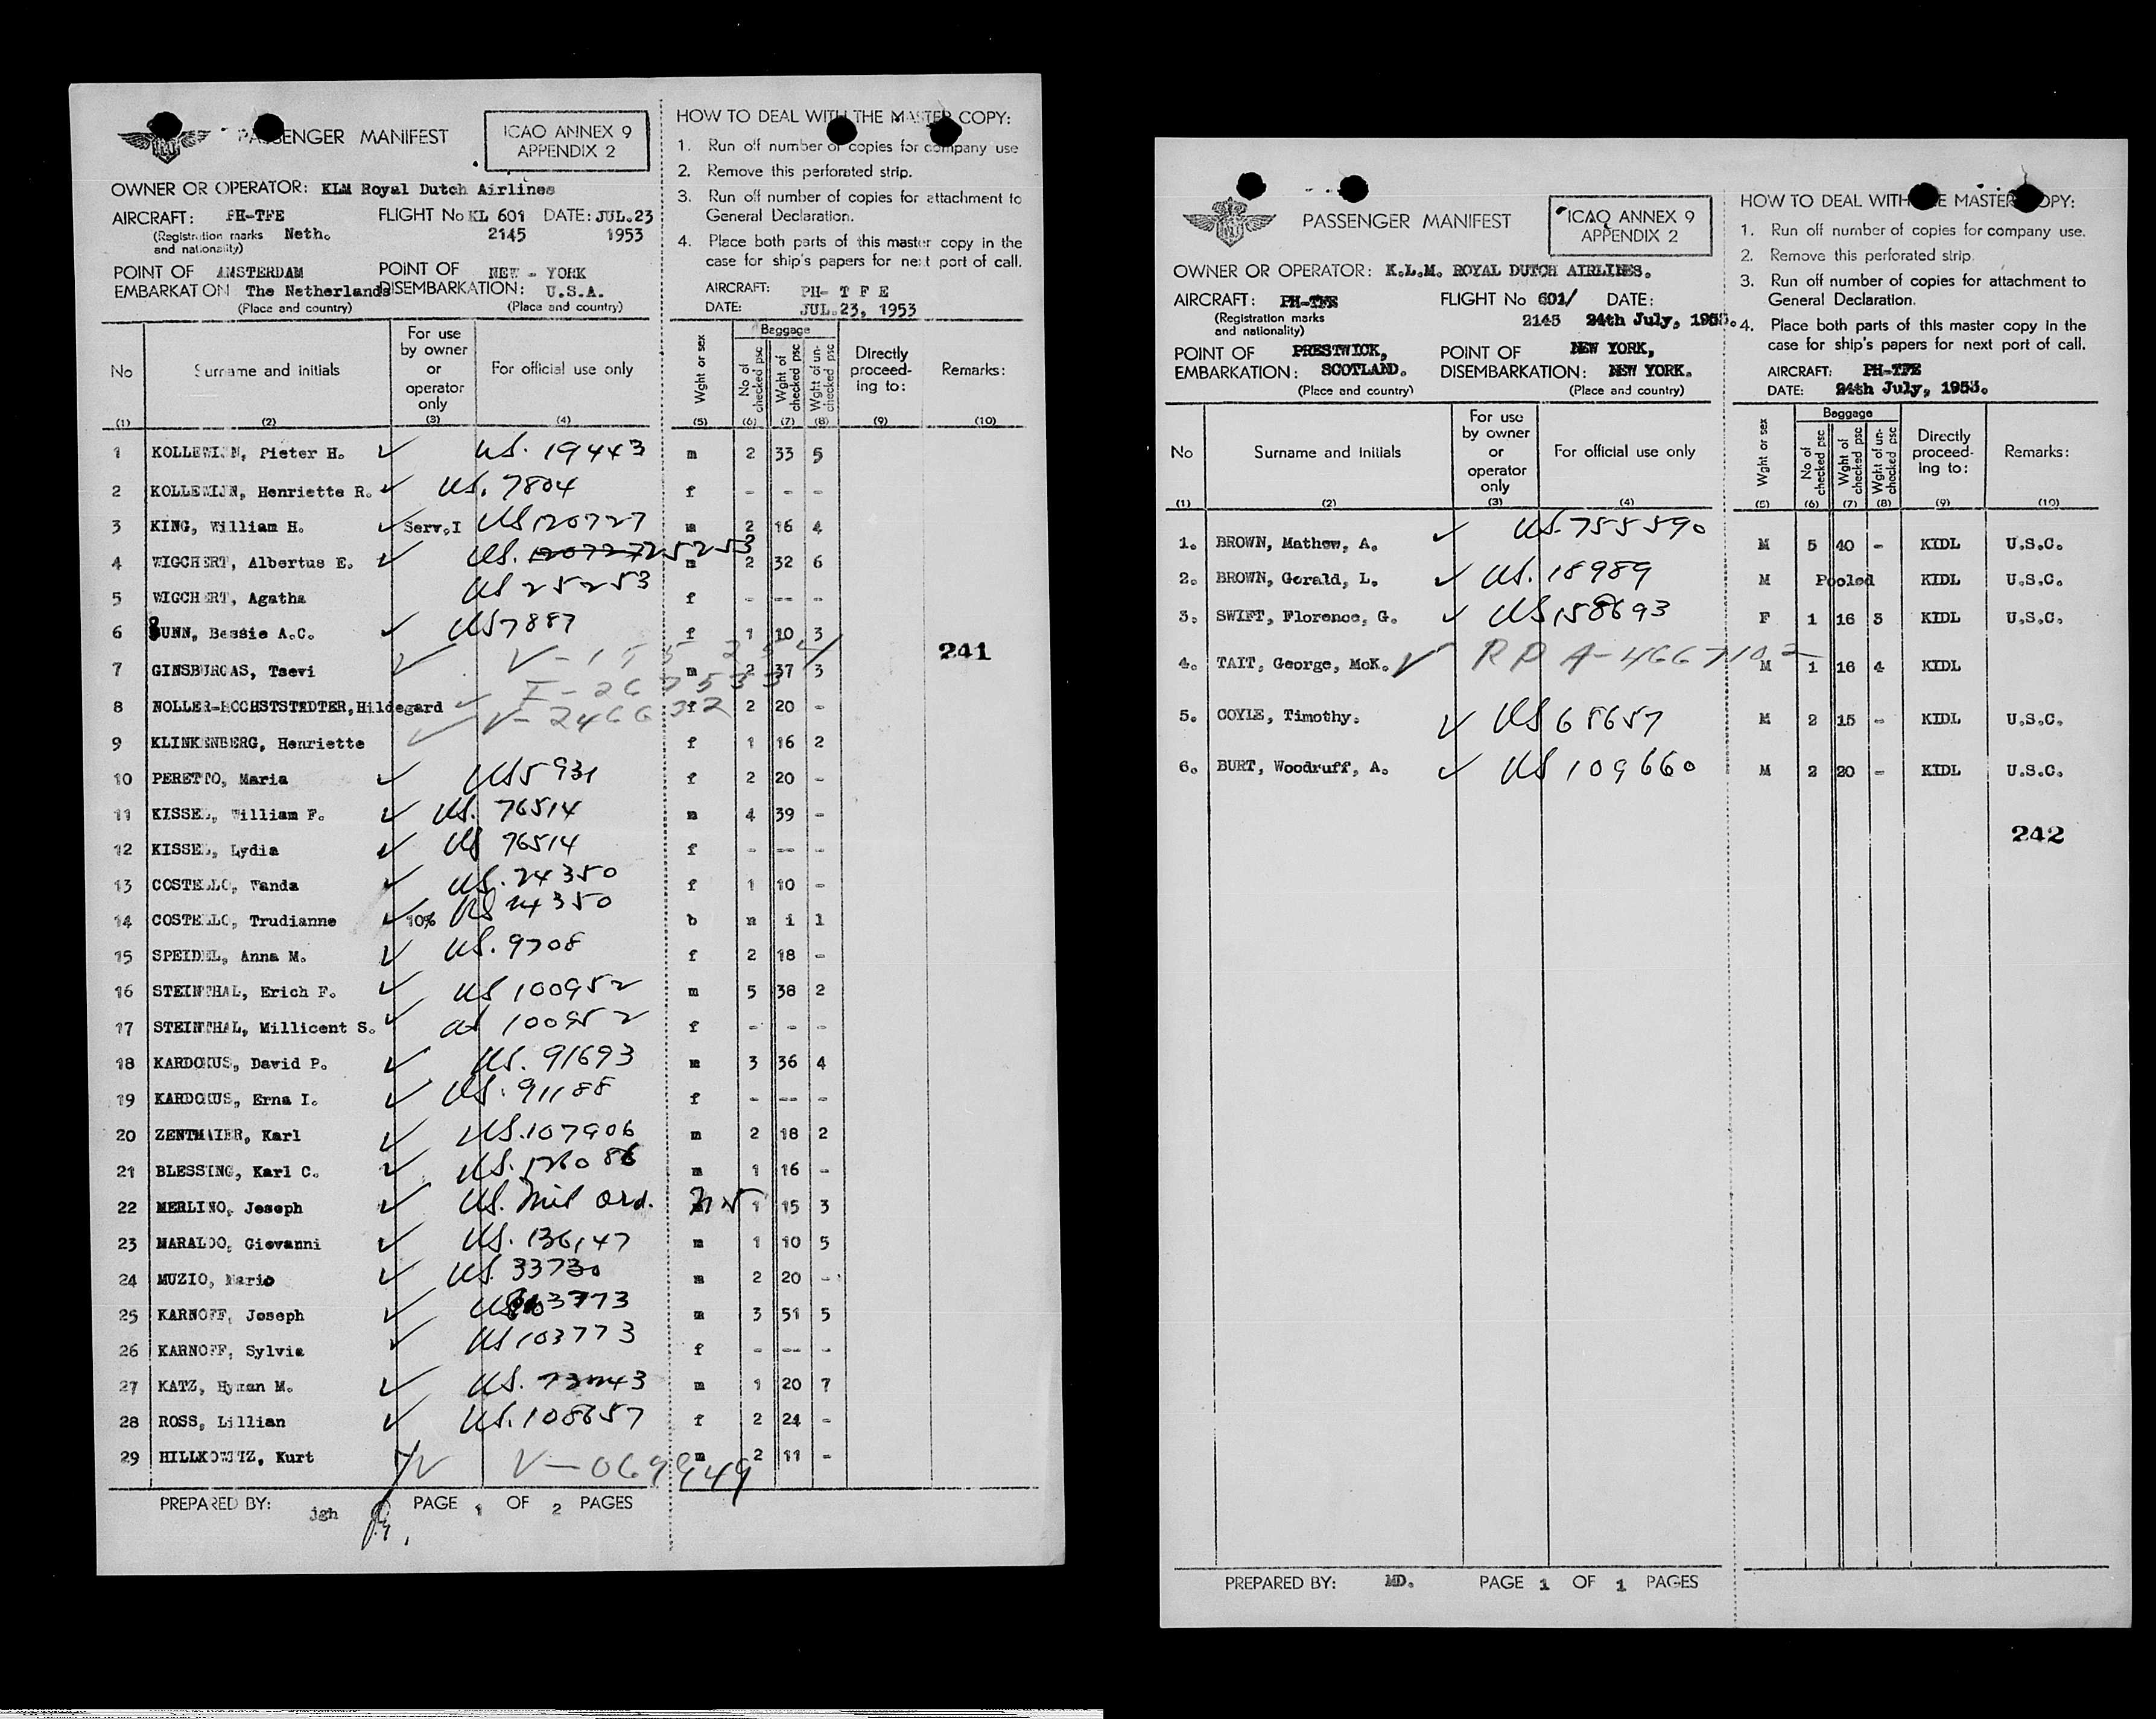 PASSENGER MANIFEST
ICAO ANNEX 9
APPENDIX 2
OWNER OR OPERATOR: KLM Royal Dutch Airlines
AIRCRAFT: PH-TFE FLIGHT No KL 601 DATE: JUL.23
(Registration marks and nationality) Neth. 2145 1953
POINT OF EMBARKATION: AMSTERDAM The Netherlands
(Place and country)
POINT OF DISEMBARKATION: NEW - YORK U.S.A.
(Place and country)
HOW TO DEAL WITH THE MASTER COPY:
1. Run off number of copies for company use
2. Remove this perforated strip.
3. Run off number of copies for attachment to
General Declaration.
4. Place both parts of this master copy in the
case for ship's papers for next port of call.
AIRCRAFT: PH- T F E
DATE: JUL.23, 1953
No Surname and initials For use by owner or operator only For official use only Wght or sex Baggage No of checked psc Wght of checked psc Wght of un-checked psc Directly proceed-ing to: Remarks:
(1) (2) (3) (4) (5) (6) (7) (8) (9) (10)
1 KOLLEWIJN, Pieter H. ✓ US. 19443 m 2 33 5
2 KOLLEWIJN, Henriette R. ✓ US. 7804 f - - -
3 KING, William H. ✓ Serv.I US 120727 m 2 16 4
4 WIGCHERT, Albertus E. ✓ US. 120727 25253 m 2 32 6
5 WIGCHERT, Agatha US 25253 f - -- -
6 BUNN, Bessie A.C. ✓ US 7887 f 1 10 3
241
7 GINSBURGAS, Tsevi ✓ V-155254 m 2 37 3
8 NOLLER-HOCHSTSTADTER, Hildegard ✓ I-267533 f 2 20 -
9 KLINKENBERG, Henriette ✓ V-246632 f 1 16 2
10 PERETTO, Maria ✓ US 5931 f 2 20 -
11 KISSEL, William F. ✓ US. 76514 m 4 39 -
12 KISSEL, Lydia ✓ US 76514 f - -- -
13 COSTELLO, Wanda ✓ US. 24350 f 1 10 -
14 COSTELLO, Trudianne ✓ 10% US 24350 b n i l
15 SPEIDEL, Anna M. ✓ US. 9708 f 2 18 -
16 STEINTHAL, Erich F. ✓ US 100952 m 5 38 2
17 STEINTHAL, Millicent S. ✓ US 100952 f - - -
18 KARDOKUS, David P. ✓ US. 91693 m 3 36 4
19 KARDOKUS, Erna I. ✓ US. 91188 f - -- -
20 ZENTMAIER, Karl ✓ US. 107906 m 2 18 2
21 BLESSING, Karl C. ✓ US. 126086 m 1 16 -
22 MERLINO, Joseph ✓ US. Mil Ord. 1 15 3
23 MARALDO, Giovanni ✓ US. 136147 m 1 10 5
24 MUZIO, Mario ✓ US. 33730 m 2 20 -
25 KARNOFF, Joseph ✓ US 103773 m 3 51 5
26 KARNOFF, Sylvia ✓ US 103773 f - -- -
27 KATZ, Hyman M. ✓ US. m 1 20 7
28 ROSS, Lillian ✓ US. 108657 f 2 24 -
29 HILLKOWITZ, Kurt V-069949 m 2 11 -
PREPARED BY: jgh PAGE 1 OF 2 PAGES
PASSENGER MANIFEST
ICAO ANNEX 9
APPENDIX 2
OWNER OR OPERATOR: K.L.M. ROYAL DUTCH AIRLINES.
AIRCRAFT: PH-TFE FLIGHT No 601/ DATE:
(Registration marks and nationality) 2145 24th July, 1953.
POINT OF EMBARKATION: PRESTWICK, SCOTLAND.
(Place and country)
POINT OF DISEMBARKATION: NEW YORK, NEW YORK.
(Place and country)
HOW TO DEAL WITH THE MASTER COPY:
1. Run off number of copies for company use.
2. Remove this perforated strip.
3. Run off number of copies for attachment to
General Declaration.
4. Place both parts of this master copy in the
case for ship's papers for next port of call.
AIRCRAFT: PH-TFE
DATE: 24th July, 1953.
No Surname and initials For use by owner or operator only For official use only Wght or sex Baggage No of checked psc Wght of checked psc Wght of un-checked psc Directly proceed-ing to: Remarks:
(1) (2) (3) (4) (5) (6) (7) (8) (9) (10)
1. BROWN, Mathew, A. ✓ US. 755590 M 5 40 - KIDL U.S.C.
2. BROWN, Gerald, L. ✓ US. 18989 M Pooled KIDL U.S.C.
3. SWIFT, Florence, G. ✓ US 158693 F 1 16 3 KIDL U.S.C.
4. TAIT, George, McK. ✓ RP A-4667102 M 1 16 4 KIDL
5. COYLE, Timothy. ✓ US 68657 M 2 15 - KIDL U.S.C.
6. BURT, Woodruff, A. ✓ US 109660 M 2 20 - KIDL U.S.C.
242
PREPARED BY: MD. PAGE 1 OF 1 PAGES